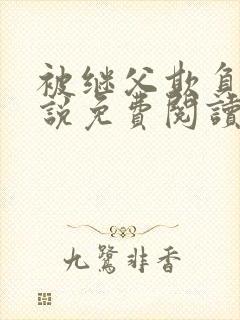 被继父欺负
說免費閱讀
九鷺非香